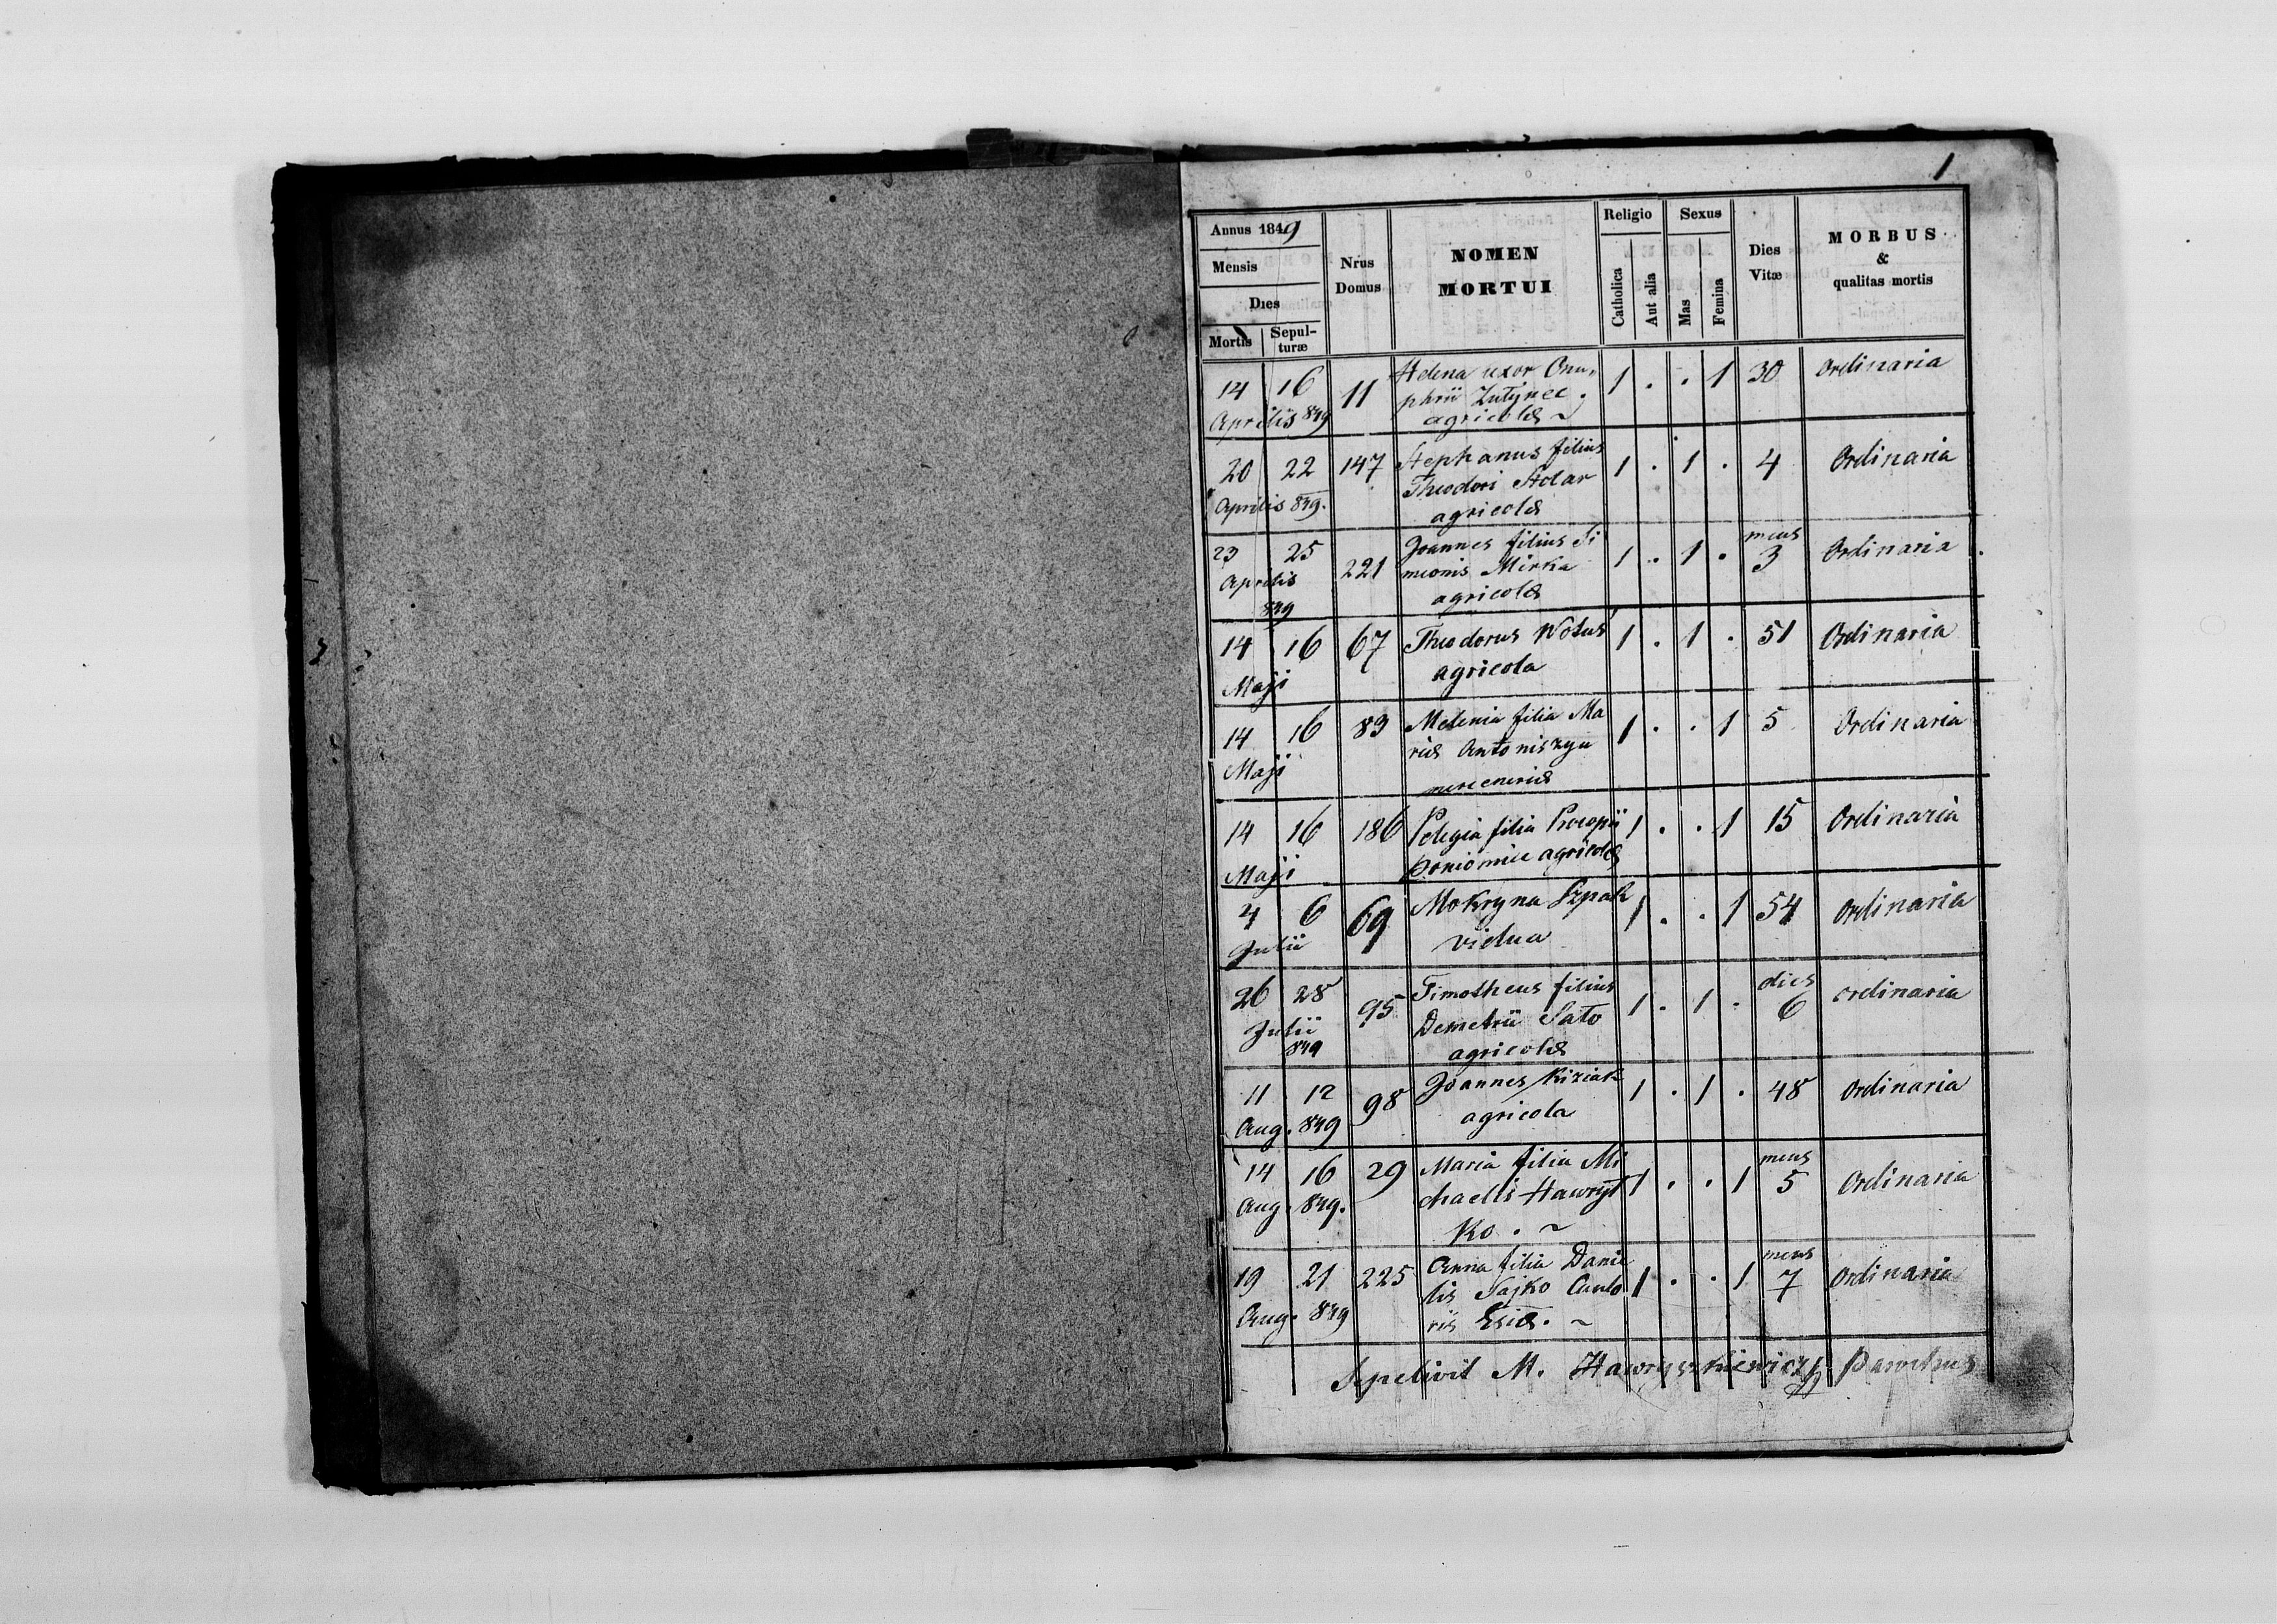 1
Annus 1849
Mensis
Dies
Mortis Sepul-
turæ
Nrus
Domus
NOMEN
MORTUI
Religio
Catholica
Aut alia
Sexus
Mas
Femina
Dies
Vitæ
MORBUS
&
qualitas mortis
14 16 11 Helena uxor Onu„ 1 . . 1 30 Ordinaria
phrii Zutynec
Aprilis 849 agricolæ ~
20 22 147 Stephanus filius 1 . 1 . 4 Ordinaria
Theodori Stolar
Aprilis 849. agricolæ
23 25 221 Joannes filius Si 1 . 1 . mens 3 Ordinaria
Aprilis meonis Mirka
849 agricolæ
14 16 67 Theodorus Wotus 1 . 1 . 51 Ordinaria
Maji agricola
14 16 89 Melenia filia Ma 1 . . 1 5 Ordinaria
riæ Antoniszyn
Maji
14 16 186 Pelegia filia Procopii 1 . . 1 15 Ordinaria
Maji agricolæ
4 6 69 Mokryna Szpak 1 . . 1 54 Ordinaria
Julii vidua
26 28 95 Timotheus filius 1 . 1 . dies 6 ordinaria
Julii Demetrii Sato
849 agricolæ
11 12 98 Joannes Kiziak 1 . 1 . 48 Ordinaria
Aug. 849 agricola
14 16 29 Maria filia Mi 1 . . 1 mens 5 Ordinaria
Aug. 849. chaelis Hawryl
ko . ~
19 21 225 Anna filia Danie 1 . . 1 mens 7 Ordinaria
lis Sajko Canto
Aug. 849 ris Esiæ. ~
Sepelivit M. Hawryszkiewicz Parochus